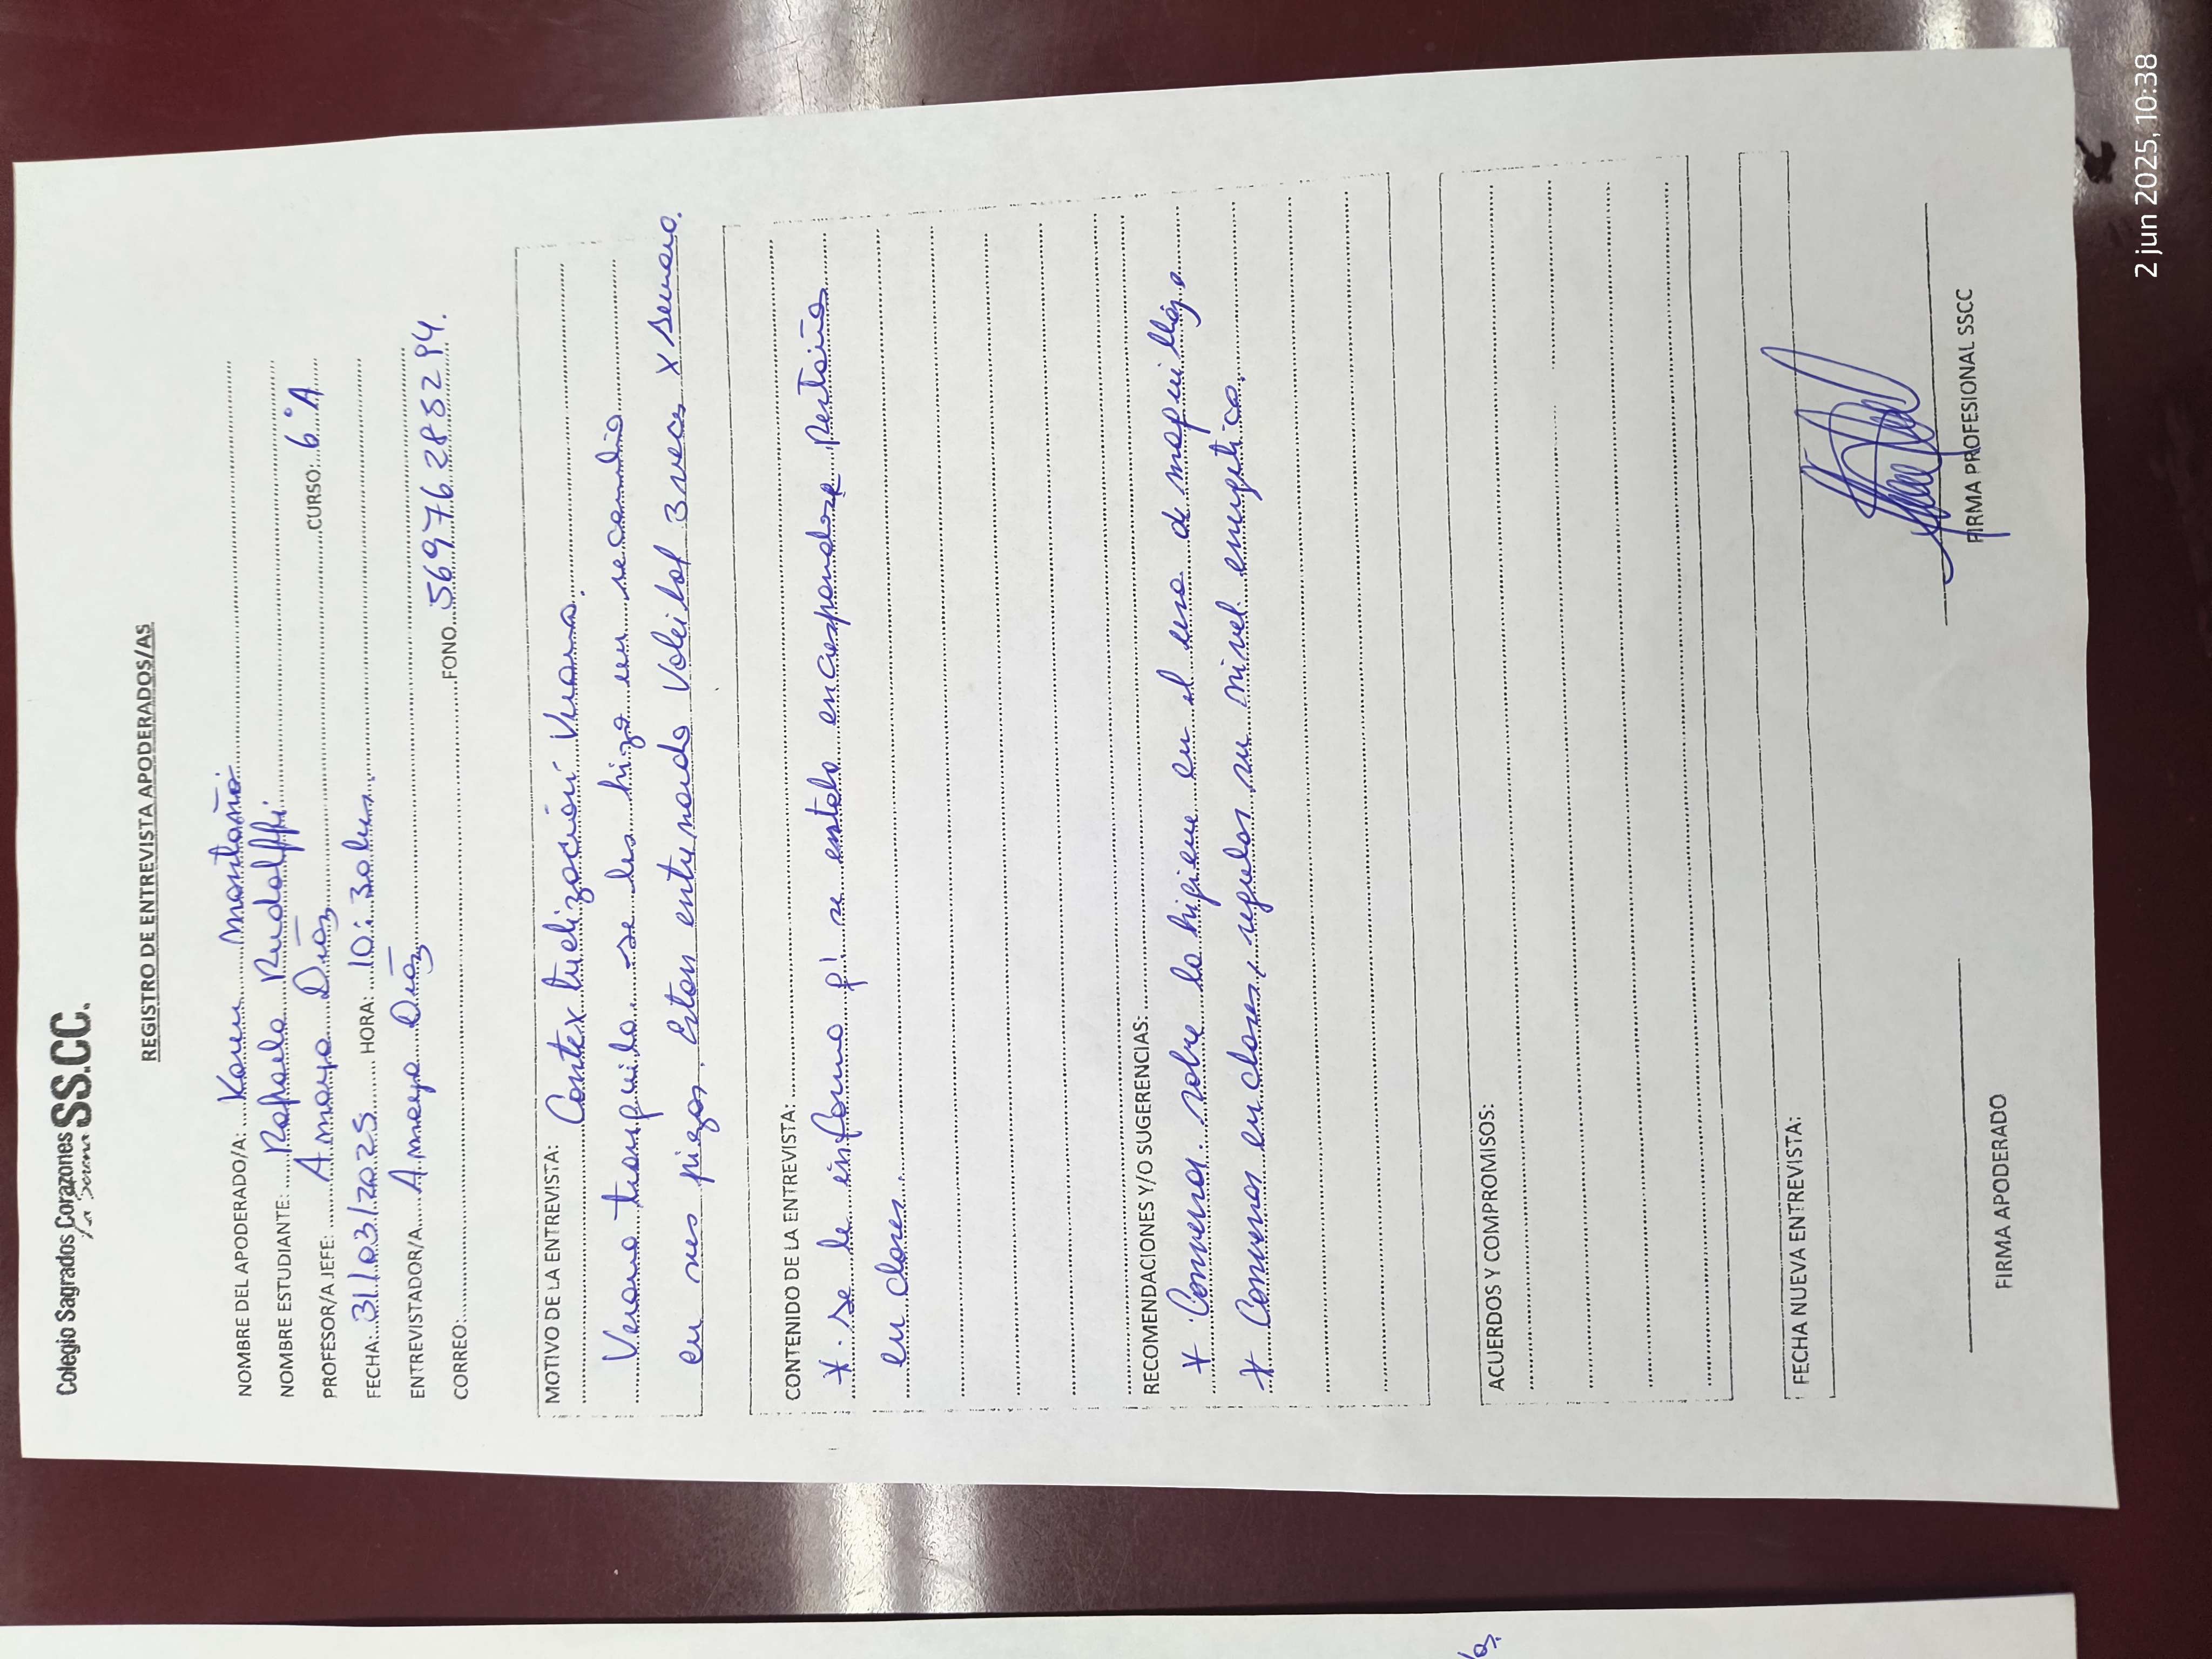 Colegio Sagrados Corazones SS.CC.
La Serena
REGISTRO DE ENTREVISTA APODERADOS/AS
NOMBRE DEL APODERADO/A: Karen Montaño.
NOMBRE ESTUDIANTE: Rafaela Rudolffi.
PROFESOR/A JEFE: Amaya Díaz CURSO: 6°A
FECHA: 31/03/2025 HORA: 10:30 hrs.
ENTREVISTADOR/A Amaya Díaz
CORREO: FONO 56976285294.
MOTIVO DE LA ENTREVISTA: Contextualización Verano.
Verano tranquilo se les hizo un recambio
en sus piezas. Están entrenando Voleibol 3 veces x semana.
CONTENIDO DE LA ENTREVISTA:
* se le informa q' se estaba encrespandose Pestañas
en clases.
RECOMENDACIONES Y/O SUGERENCIAS:
* Conversar sobre la higiene en el uso de maquillaje
* Conversar en clases, regular su nivel energético.
ACUERDOS Y COMPROMISOS:
FECHA NUEVA ENTREVISTA:
FIRMA APODERADO
FIRMA PROFESIONAL SSCC
2 jun 2025, 10:38